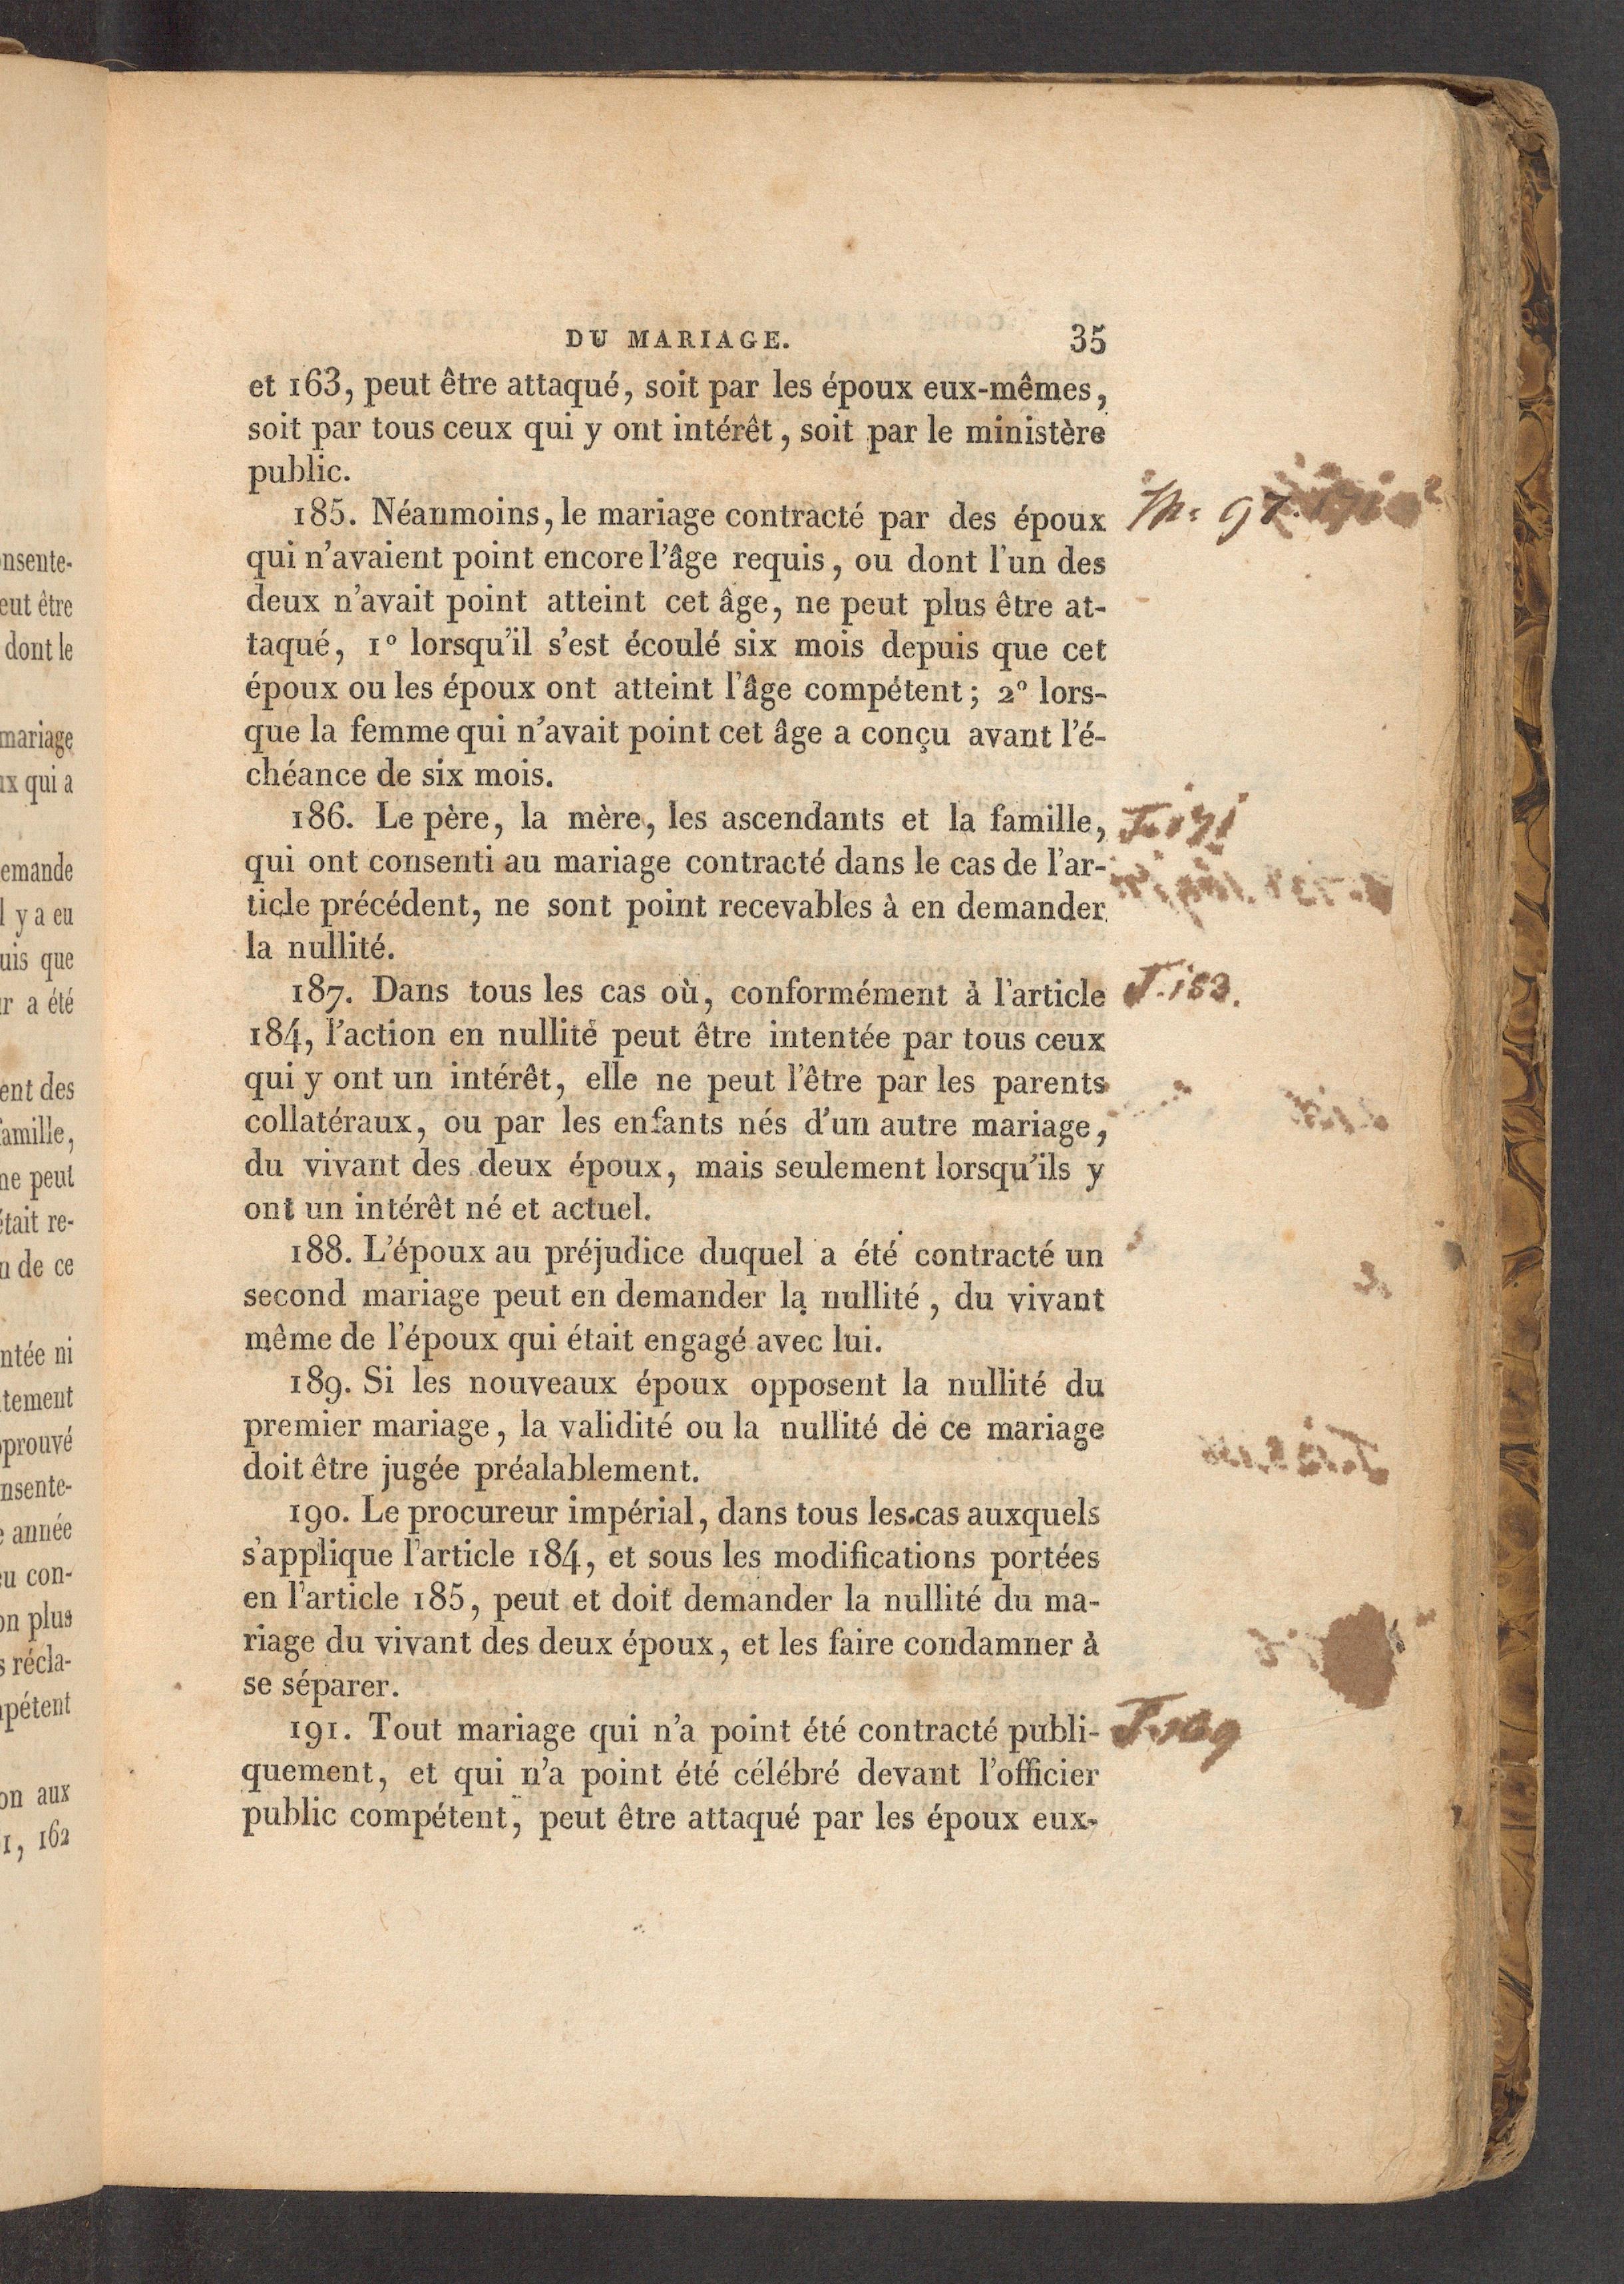 DU MARIAGE. 35
et 163, peut être attaqué, soit par les époux eux-mêmes,
soit par tous ceux qui y ont intérêt, soit par le ministère
public.
185. Néanmoins, le mariage contracté par des époux
qui n'avaient point encore l'âge requis, ou dont l'un des
deux n'avait point atteint cet âge, ne peut plus être at-
taqué, 1° lorsqu'il s'est écoulé six mois depuis que cet
époux ou les époux ont atteint l'âge compétent; 2° lors-
que la femme qui n'avait point cet âge a conçu avant l'é-
chéance de six mois.
186. Le père, la mère, les ascendants et la famille,
qui ont consenti au mariage contracté dans le cas de l'ar-
ticle précédent, ne sont point recevables à en demander
la nullité.
187. Dans tous les cas où, conformément à l'article
184, l'action en nullité peut être intentée par tous ceux
qui y ont un intérêt, elle ne peut l'être par les parents
collatéraux, ou par les enfants nés d'un autre mariage,
du vivant des deux époux, mais seulement lorsqu'ils y
ont un intérêt né et actuel.
188. L'époux au préjudice duquel a été contracté un
second mariage peut en demander la nullité, du vivant
même de l'époux qui était engagé avec lui.
189. Si les nouveaux époux opposent la nullité du
premier mariage, la validité ou la nullité de ce mariage
doit être jugée préalablement.
190. Le procureur impérial, dans tous les cas auxquels
s'applique l'article 184, et sous les modifications portées
en l'article 185, peut et doit demander la nullité du ma-
riage du vivant des deux époux, et les faire condamner à
se séparer.
191. Tout mariage qui n'a point été contracté publi-
quement, et qui n'a point été célébré devant l'officier
public compétent, peut être attaqué par les époux eux-
nsente-
eut être
dont le
mariage
ux qui a
emande
l y a eu
uis que
r a été
ent des
amille,
ne peut
était re-
u de ce
ntée ni
tement
prouvé
nsente-
e année
eu con-
on plus
s récla-
pétent
on aux
1, 162